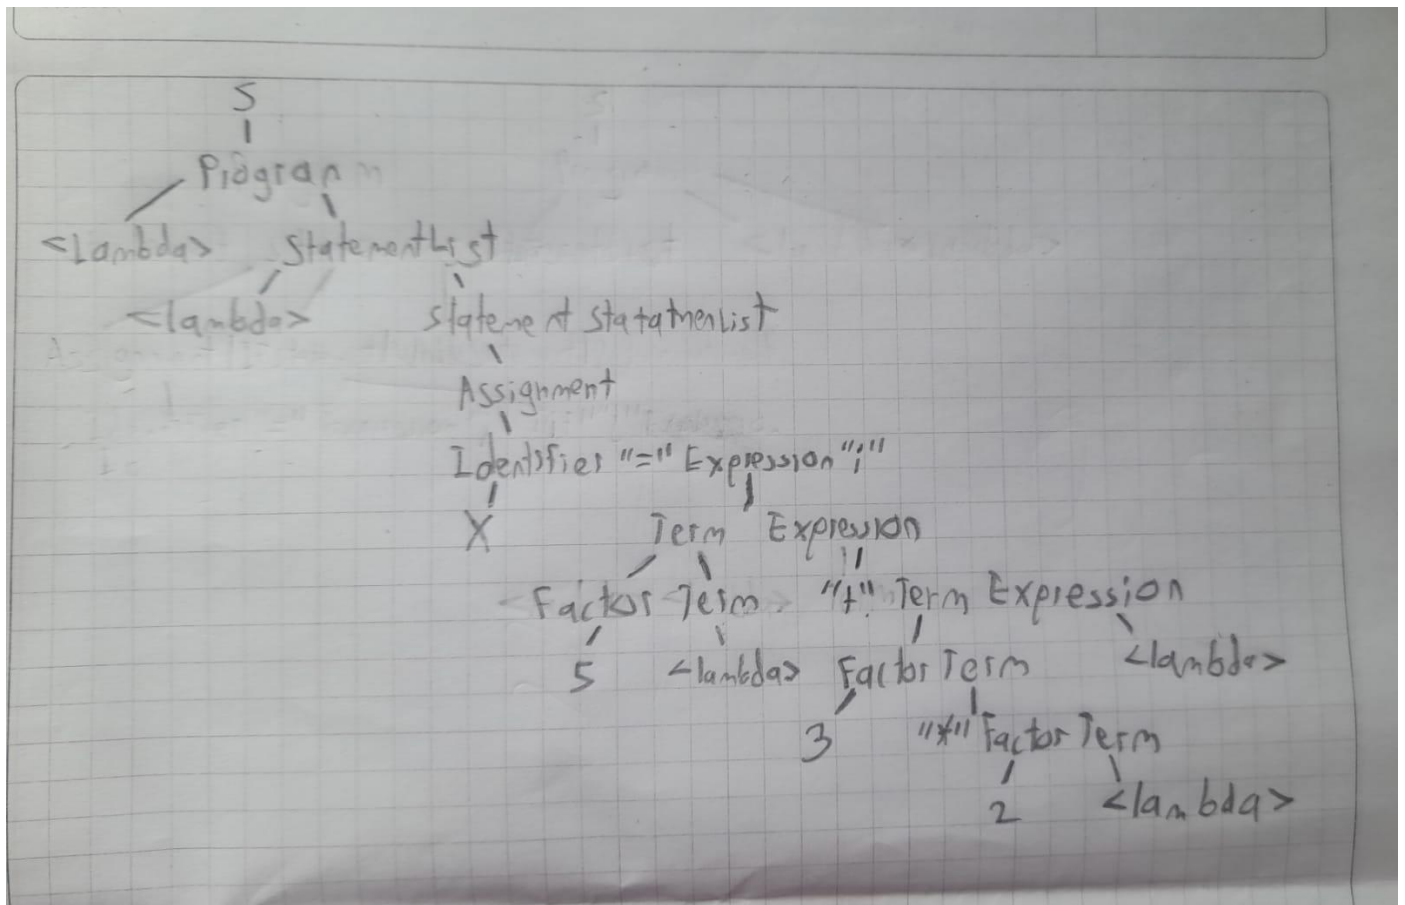 S
Program
<Lambda> StatementList
<lambda> Statement StatatmenList
Assignment
Identifier "=" Expression ";"
X Term Expression
Factor Term "+" Term Expression
5 <lambda> Factor Term <lambda>
3 "*" Factor Term
2 <lambda>